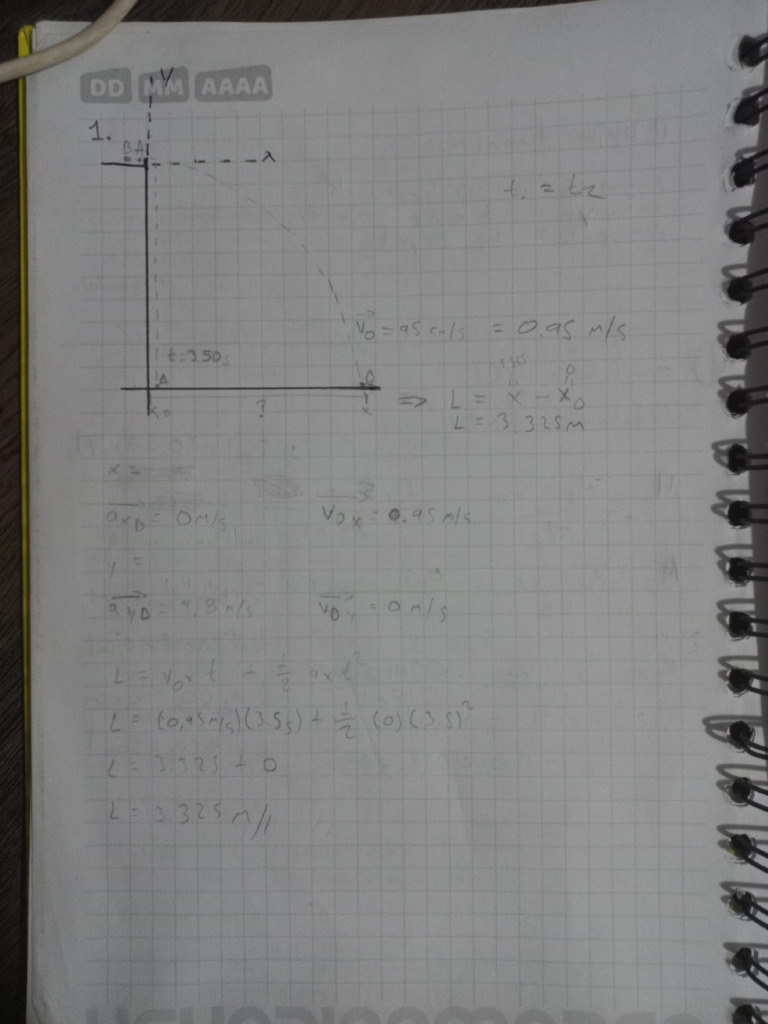 DD MM AAAA
y
1.
B A
x
t₁ = t₂
V₀ = 95 cm/s = 0,95 m/s
t=3.50s
A
B
x₀ ? x
⇒ L = x - x₀
L = 3.325 m
x =
a_x₀ = 0 m/s V₀x = 0.95 m/s
y =
= 9,8 m/s = 0 m/s
L = V₀x t + 1/2 ax t²
L = (0,95 m/s)(3.5s) + 1/2 (0)(3.5)²
L = 3.325 + 0
L = 3.325 m//